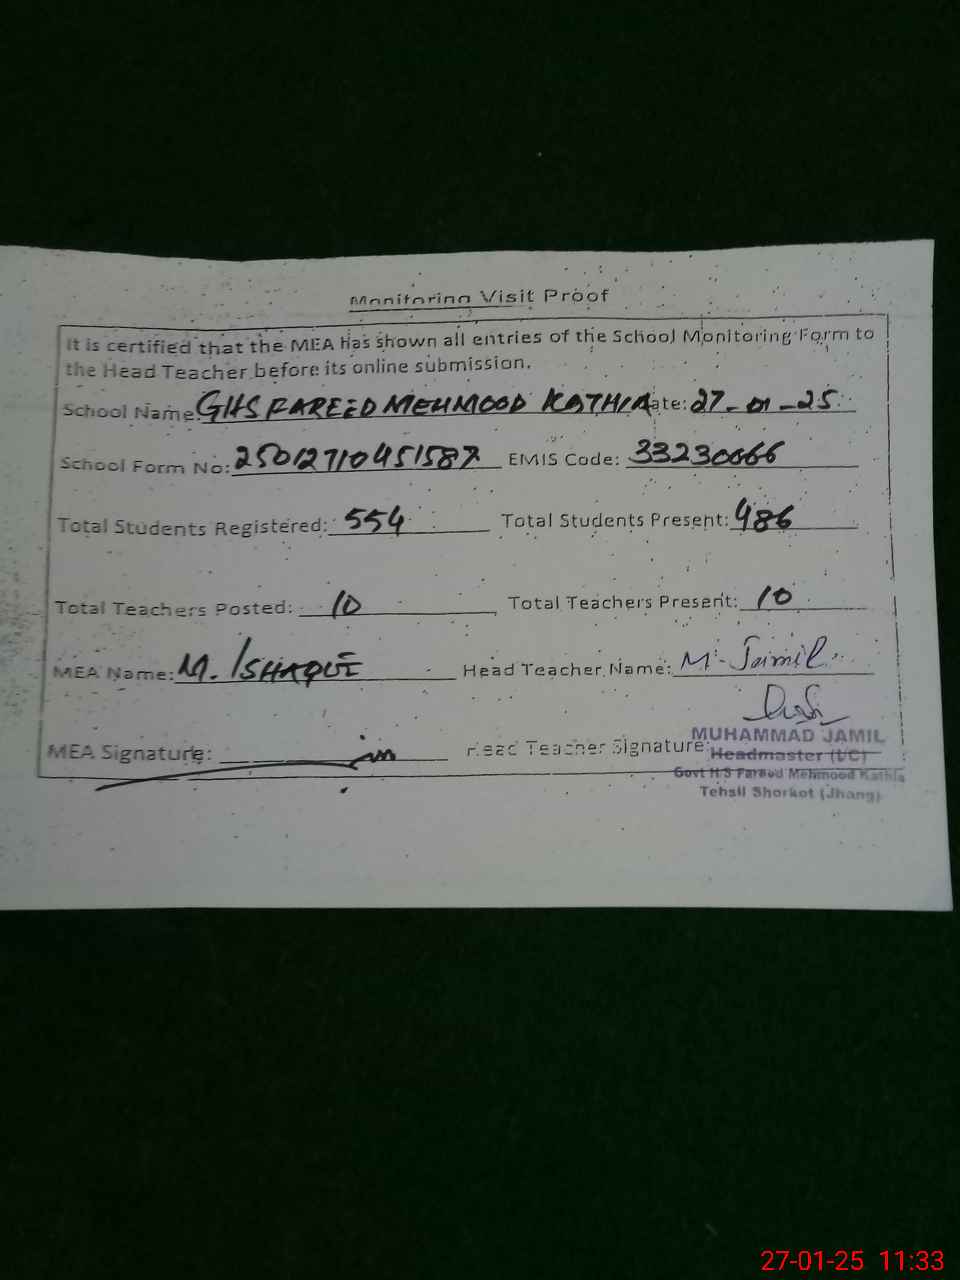 Monitoring Visit Proof
It is certified that the MEA has shown all entries of the School Monitoring Form to
the Head Teacher before its online submission.
School Name: GHS FAREED MEHMOOD KATHIA Date: 27-01-25
School Form No: 25012710451587 EMIS Code: 33230066
Total Students Registered: 554 Total Students Present: 486
Total Teachers Posted: 10 Total Teachers Present: 10
MEA Name: M. ISHAQUE Head Teacher Name: M. Jamil
MEA Signature: Head Teacher Signature:
MUHAMMAD JAMIL
Headmaster (UC)
Govt H.S Fareed Mehmood Kathia
Tehsil Shorkot (Jhang)
27-01-25 11:33